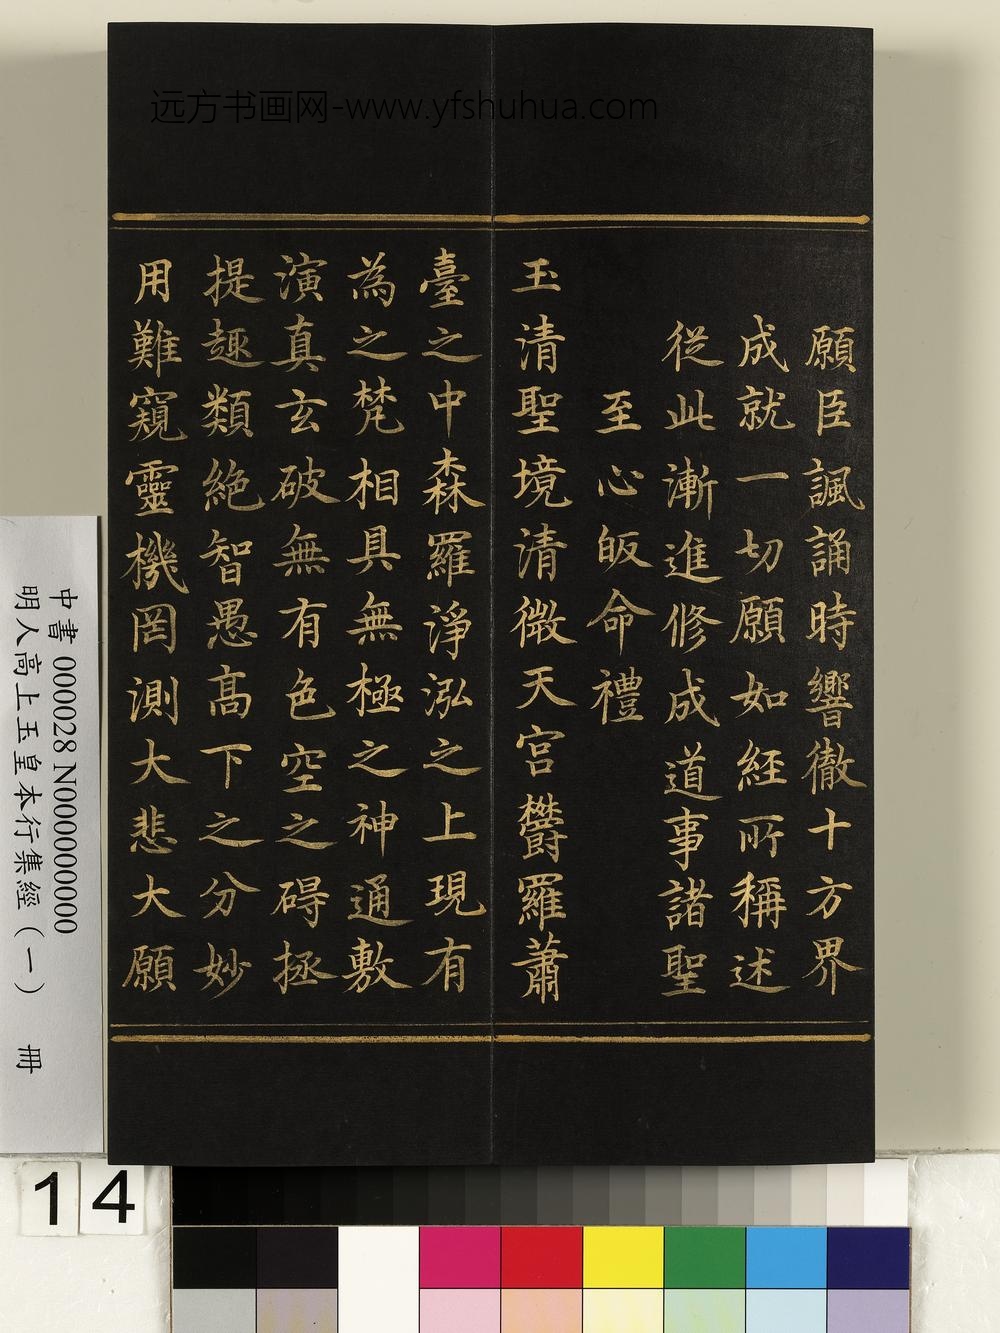 远方书画网-www.yfshuhua.com
願臣諷誦時響徹十方界
成就一切願如經所稱述
從此漸進修成道事諸聖
至心皈命禮
玉清聖境清微天宮欎羅蕭
臺之中森羅淨泓之上現有
為之梵相具無極之神通敷
演真玄破無有色空之碍拯
提趣類絶智愚髙下之分妙
用難窺靈機罔測大悲大願
中書 000028 N000000000
明人高上玉皇本行集經（一） 冊
14